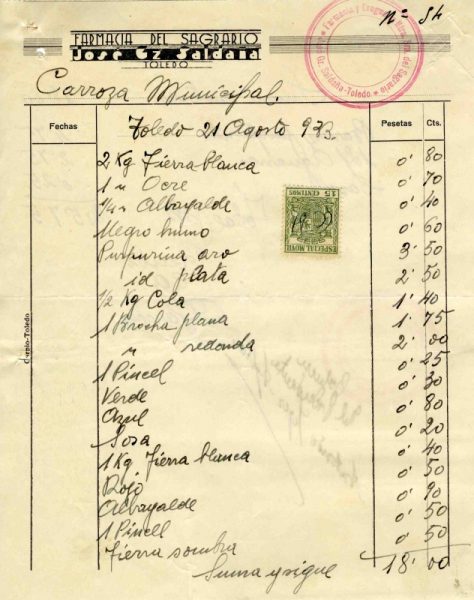 nº 54
FARMACIA DEL SAGRARIO
José Gz Saldaña
TOLEDO
Carroza Municipal.
Fechas Pesetas Cts.
Toledo 21 Agosto 933.
2 Kg Tierra blanca 0' 80
1 " Ocre 0' 70
1/4 " Albayalde 0' 40
Negro humo 0' 60
Purpurina oro 3' 50
id plata 2' 50
1/2 Kg Cola 1' 40
1 Brocha plana 1' 75
" redonda 2' 00
1 Pincel 0' 25
Verde 0' 30
Azul 0' 80
Sosa 0' 20
1 Kg Tierra blanca 0' 40
Rojo 0' 50
Albayalde 0' 90
1 Pincel 0' 50
Tierra sombra 0' 50
Suma y sigue 18' 00
ESPECIAL MOVIL
15 CENTIMOS